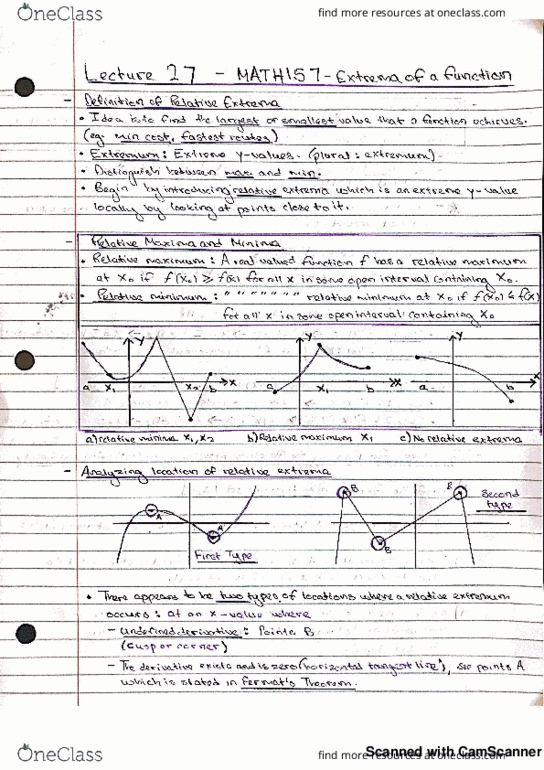 OneClass
find more resources at oneclass.com
Lecture 27 - MATH157 - Extrema of a function
- Definition of Relative Extrema
• Idea is to find the largest or smallest value that a function achieves.
(eg. min cost, fastest routes)
• Extremum: Extreme y-values. (plural: extremum)
• Distinguish between max and min.
• Begin by introducing relative extrema which is an extreme y-value
locally by looking at points close to it.
- Relative Maxima and Minima
• Relative maximum: A real valued function f has a relative maximum
at x₀ if f(x₀) ≥ f(x) for all x in some open interval containing x₀.
• Relative minimum: " " " " " " " relative minimum at x₀ if f(x₀) ≤ f(x)
for all x in some open interval containing x₀
y y y
a x₁ x₂ b x a x₁ b x a b x
a) relative minima x₁, x₂ b) Relative maximum x₁ c) No relative extrema
- Analyzing location of relative extrema
A A First Type
B B B Second type
• There appears to be two types of locations where a relative extremum
occurs: at an x-value where
- Undefined derivative: Points B
(cusp or corner)
- The derivative exists and is zero (horizontal tangent line), see points A
which is stated in Fermat's Theorem.
OneClass
find more resources at oneclass.com
Scanned with CamScanner